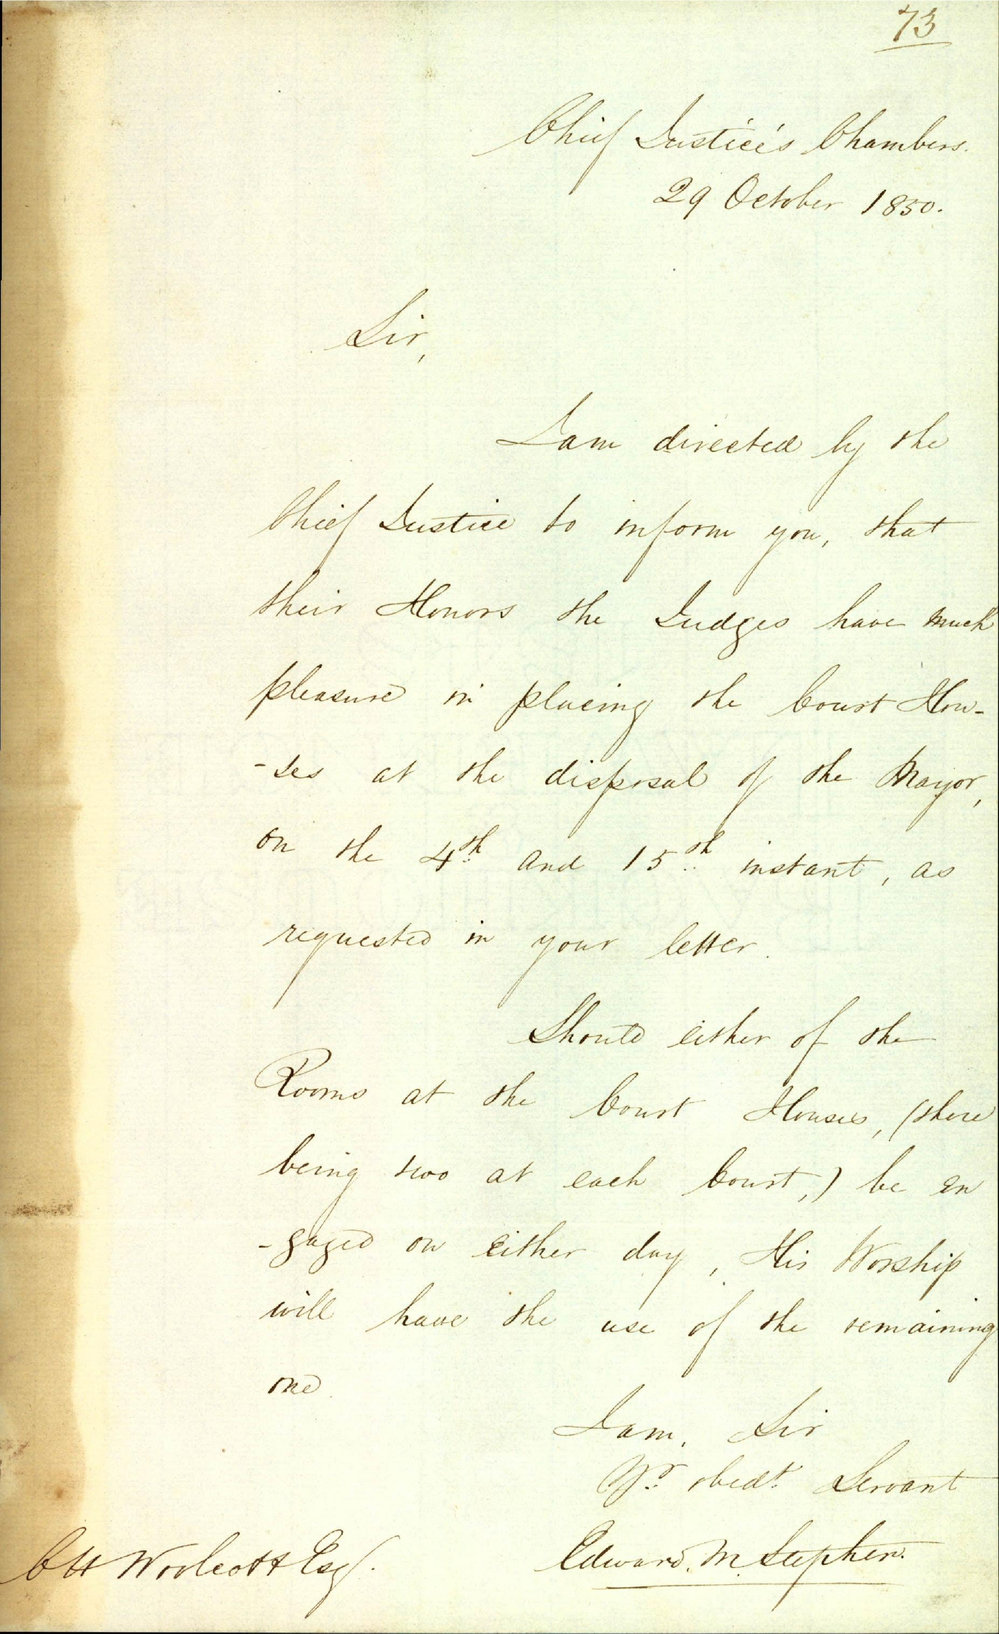 73
Chief Justice's Chambers.
29 October 1850.
Sir,
I am directed by the
Chief Justice to inform you, that
their Honors the Judges have much
pleasure in placing the Court Hou-
-ses at the disposal of the Mayor,
on the 4th and 15th instant, as
requested in your letter.
Should either of the
Rooms at the Court Houses, (there
being two at each Court,) be en
-gaged on either day, His Worship
will have the use of the remaining
one.
I am, Sir
Yr. obedt. Servant
Edward. M. Stephen.
C H Woolcott Esq.